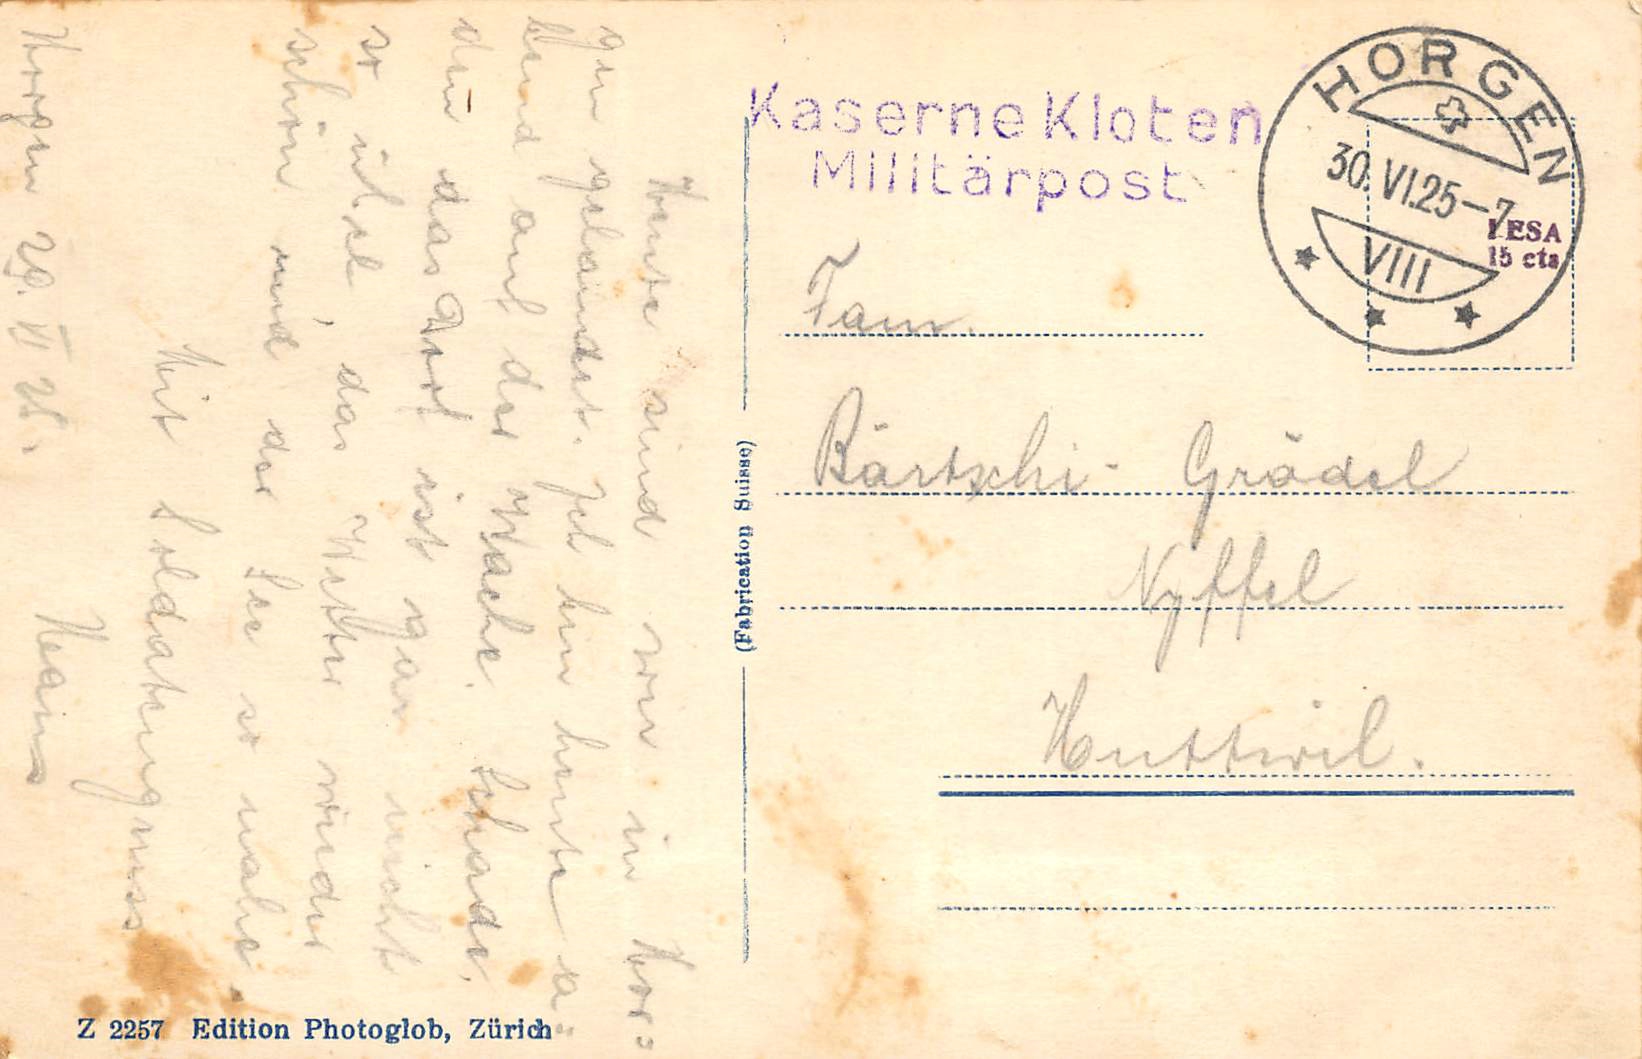 Kaserne Kloten
Militärpost
HORGEN
30.VI.25-7
VIII
LESA
15 cts
Fam.
Bärtschi-Grädel
Nyffel
Huttwil.
(Fabrication Suisse)
Heute sind wir in Hor-
gen gelandet. Ich bin heute a-
bend auf der Wache. Schade,
denn das Dorf ist gar nicht
so übel, das Wetter wieder
schön und der See so nahe.
Mit Soldatengruss
Hans
Horgen 29. VI 25.
Z 2257 Edition Photoglob, Zürich